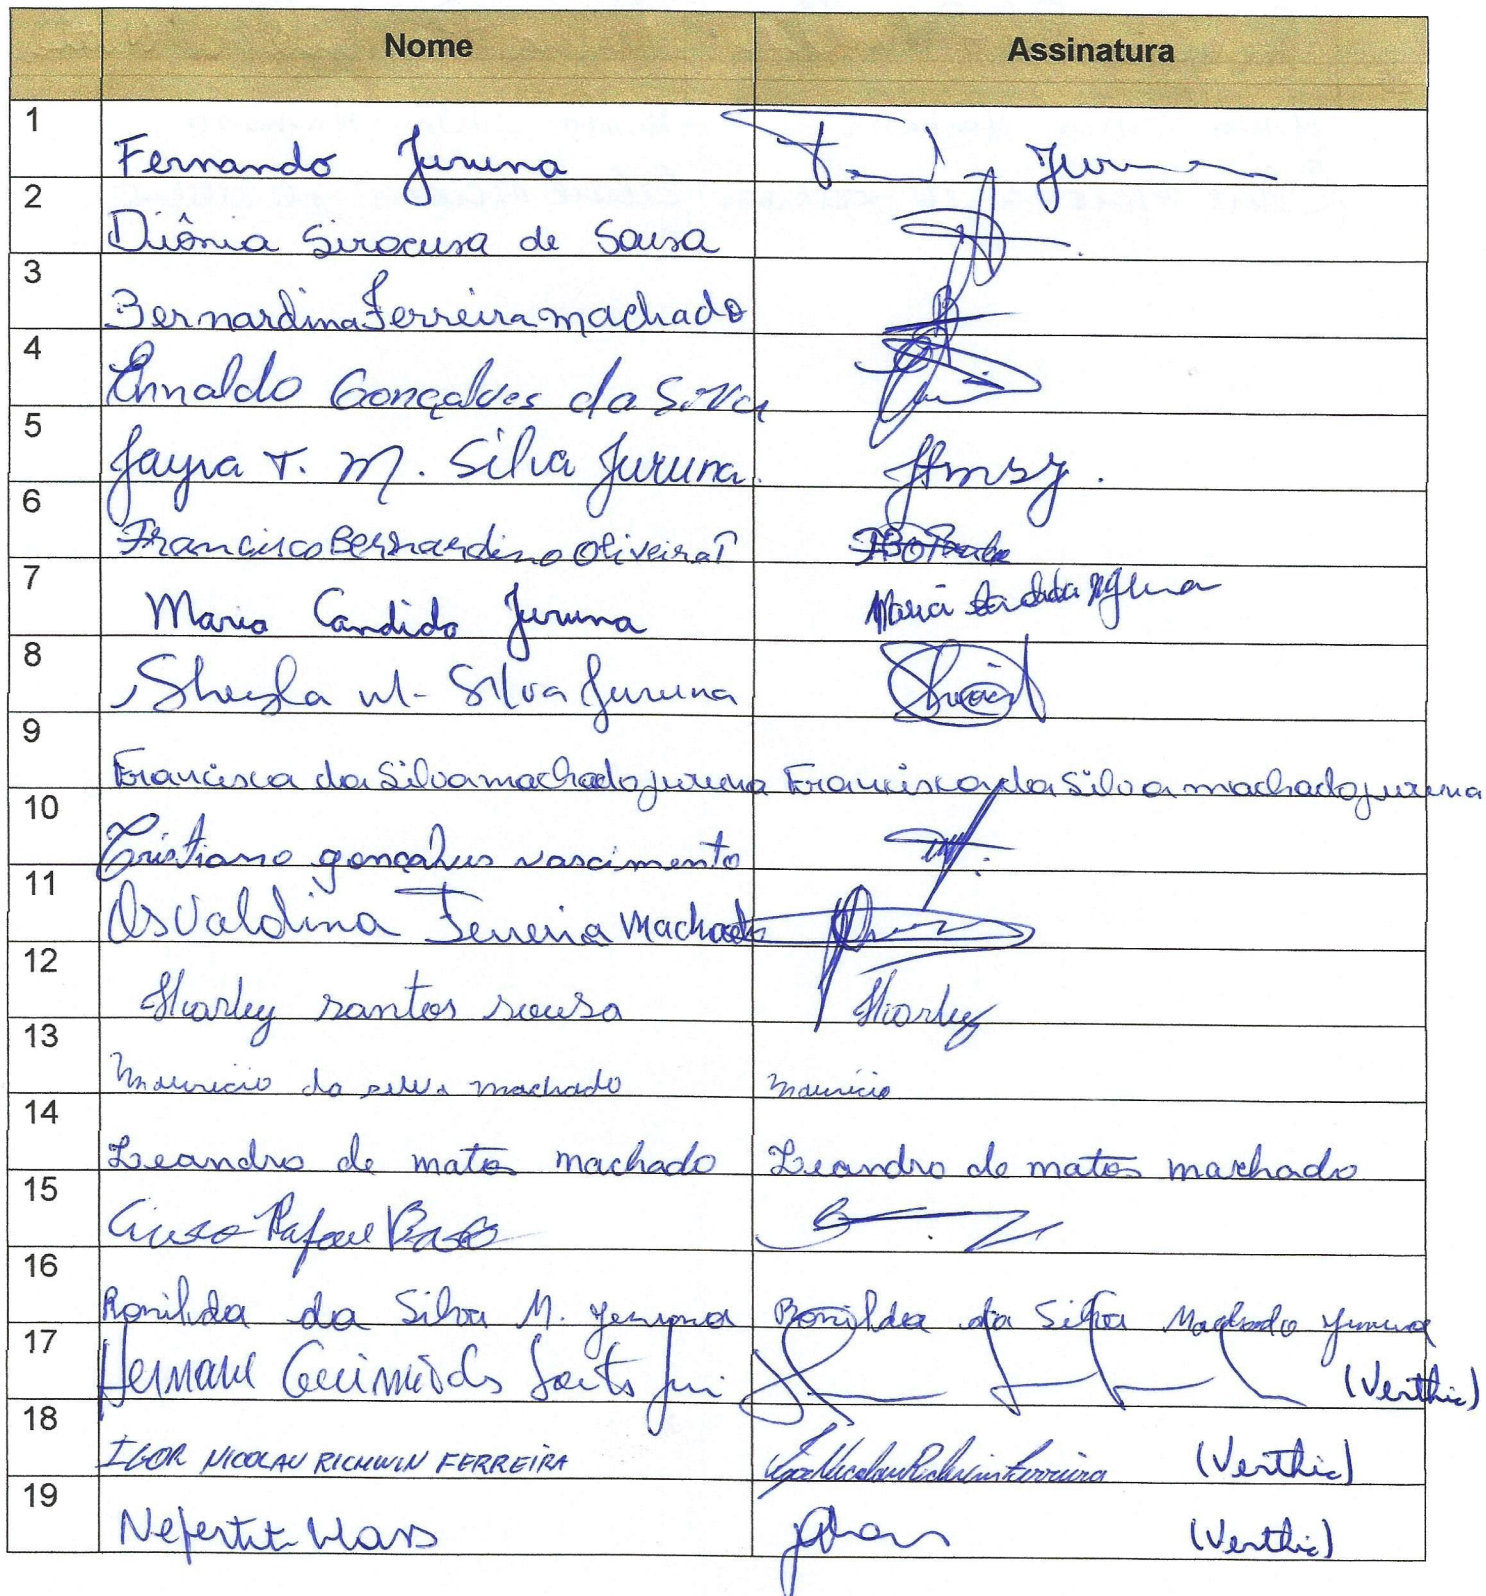 Nome Assinatura
1 Fernando Juruna
2 Diônia Siracusa de Sousa
3 Bernardina Ferreira machado
4 Gonçalves da Silva
5 Jayra T. M. Silva Juruna. JTMSJ.
6 Francisco Bernardino Oliveira T
7 Maria Candida Juruna Maria Candida
8 Sheyla M- Silva Juruna
9 Francisca da Silva machado juruna Francisca da Silva machado juruna
10 Cristiano gonçalves nascimento
11 Osvaldina Ferreira Machado
12 Sharley santos sousa Sharley
13 Mauricio da silva machado mauricio
14 Leandro de matos machado Leandro de matos machado
15 Rafael
16 Ronilda da Silva M. Juruna Ronilda da Silva Machado Juruna
17 (Verthic)
18 IGOR NICOLAU RICHWIN FERREIRA Igor Nicolau Richwin Ferreira (Verthic)
19 (Verthic)